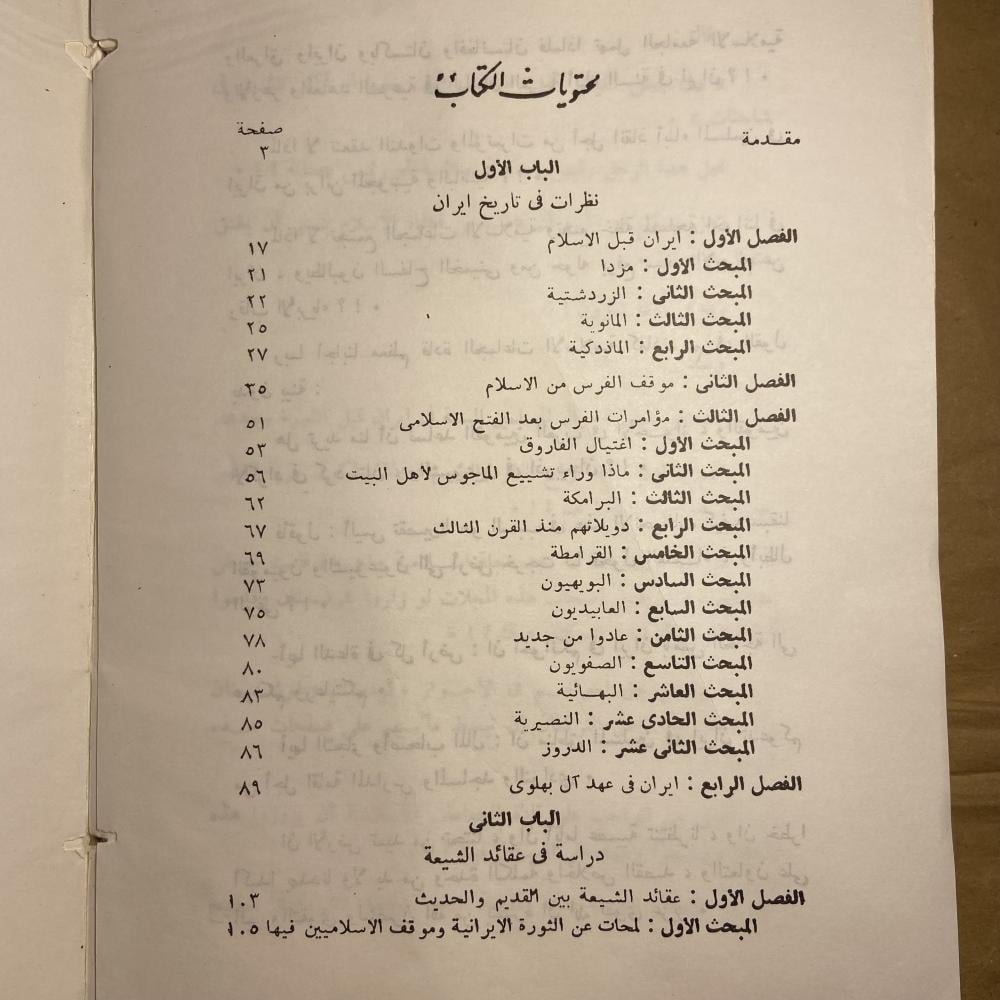 محتويات الكتاب
صفحة
مقدمة
٣
الباب الأول
نظرات فى تاريخ ايران
الفصل الأول : ايران قبل الاسلام ١٧
المبحث الأول : مزدا ٢١
المبحث الثانى : الزردشتية ٢٢
المبحث الثالث : المانوية ٢٥
المبحث الرابع : الماذدكية ٢٧
الفصل الثانى : موقف الفرس من الاسلام ٣٥
الفصل الثالث : مؤامرات الفرس بعد الفتح الاسلامى ٥١
المبحث الأول : اغتيال الفاروق ٥٣
المبحث الثانى : ماذا وراء تشييع الماجوس لأهل البيت ٥٦
المبحث الثالث : البرامكة ٦٢
المبحث الرابع : دويلاتهم منذ القرن الثالث ٦٧
المبحث الخامس : القرامطة ٦٩
المبحث السادس : البويهيون ٧٣
المبحث السابع : العابيديون ٧٥
المبحث الثامن : عادوا من جديد ٧٨
المبحث التاسع : الصفويون ٨٠
المبحث العاشر : البهـائية ٨٣
المبحث الحادى عشر : النصيرية ٨٥
المبحث الثانى عشر : الدروز ٨٦
الفصل الرابع : ايران فى عهد آل بهلوى ٨٩
الباب الثانى
دراسة فى عقائد الشيعة
الفصل الأول : عقائد الشيعة بين القديم والحديث ١٠٣
المبحث الأول : لمحات عن الثورة الايرانية وموقف الاسلاميين فيها ١٠٥